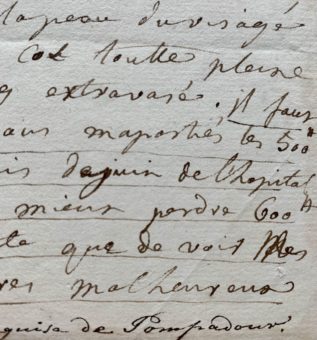 la peau du visage
col toutte pleine
g extravasé. il faut
maportiés les 500#
is de juin de l'hopital
mieux perdre 600#
te que de voir
res malheureux
quise de Pompadour.